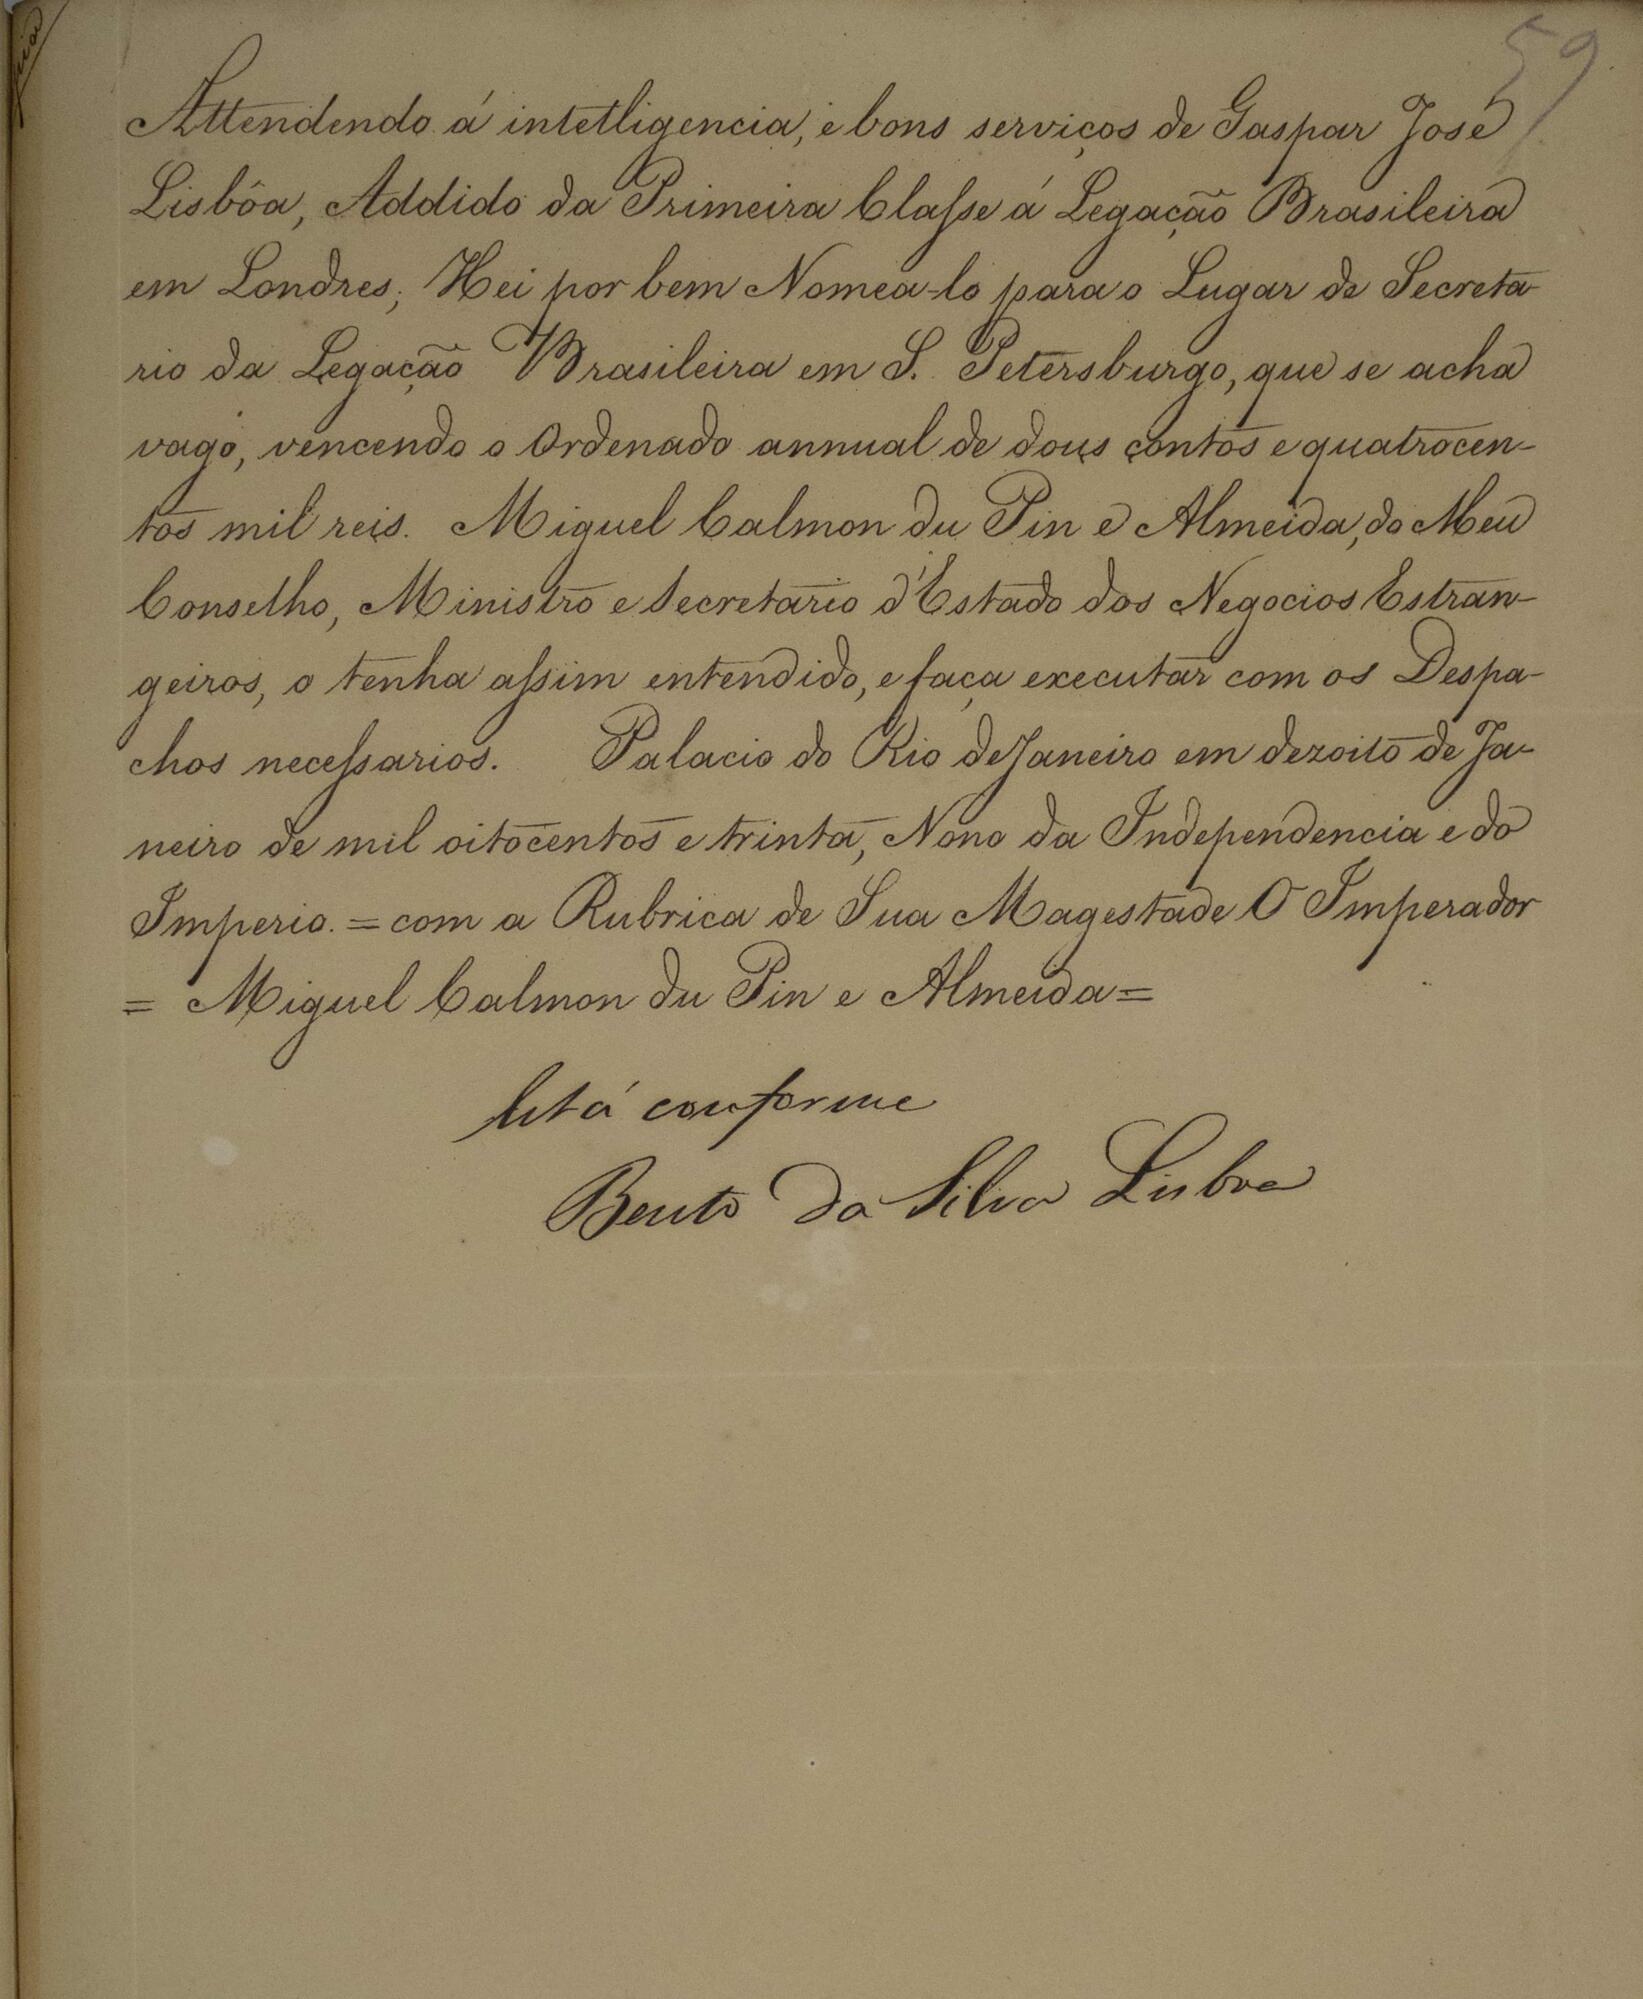 59
Attendendo á intelligencia, e bons serviços de Gaspar José
Lisbôa, Addido da Primeira Classe á Legação Brasileira
em Londres; Hei por bem Nomea-lo para o Lugar de Secreta-
rio da Legação Brasileira em S. Petersburgo, que se acha
vago, vencendo o Ordenado annual de dous contos e quatrocen-
tos mil reis. Miguel Calmon du Pin e Almeida, do Meu
Conselho, Ministro e Secretario d'Estado dos Negocios Estran-
geiros, o tenha assim entendido, e faça executar com os Despa-
chos necessarios. Palacio do Rio de Janeiro em dezoito de Ja-
neiro de mil oitocentos e trinta, Nono da Independencia e do
Imperio. = com a Rubrica de Sua Magestade O Imperador
= Miguel Calmon du Pin e Almeida =
Está conforme
Bento da Silva Lisboa